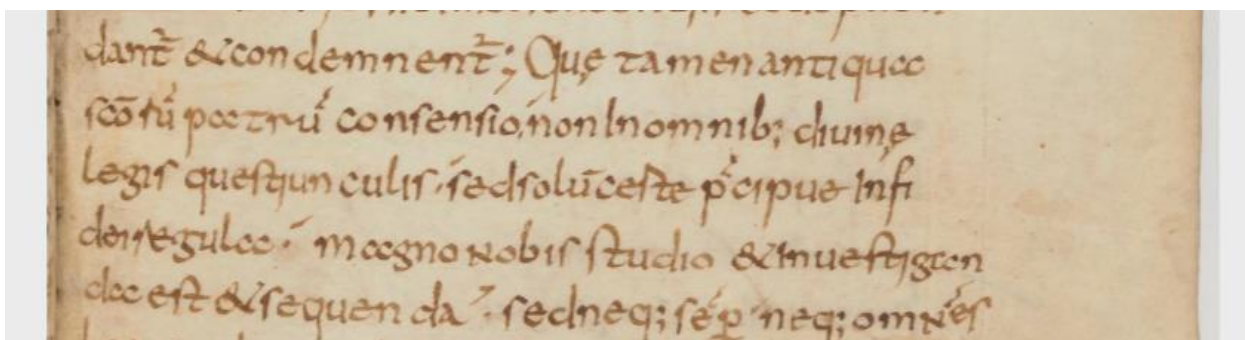 dant̄ & condemnent̄; Quę tamen antiqua
scōrū patrū consensio, non In omnib; diuinę
legis questiunculis · sed solū certe p̄cipue In fi
dei regula · magno nobis studio & inuestigan
da est & sequenda · sed neq; sēp neq; omnes